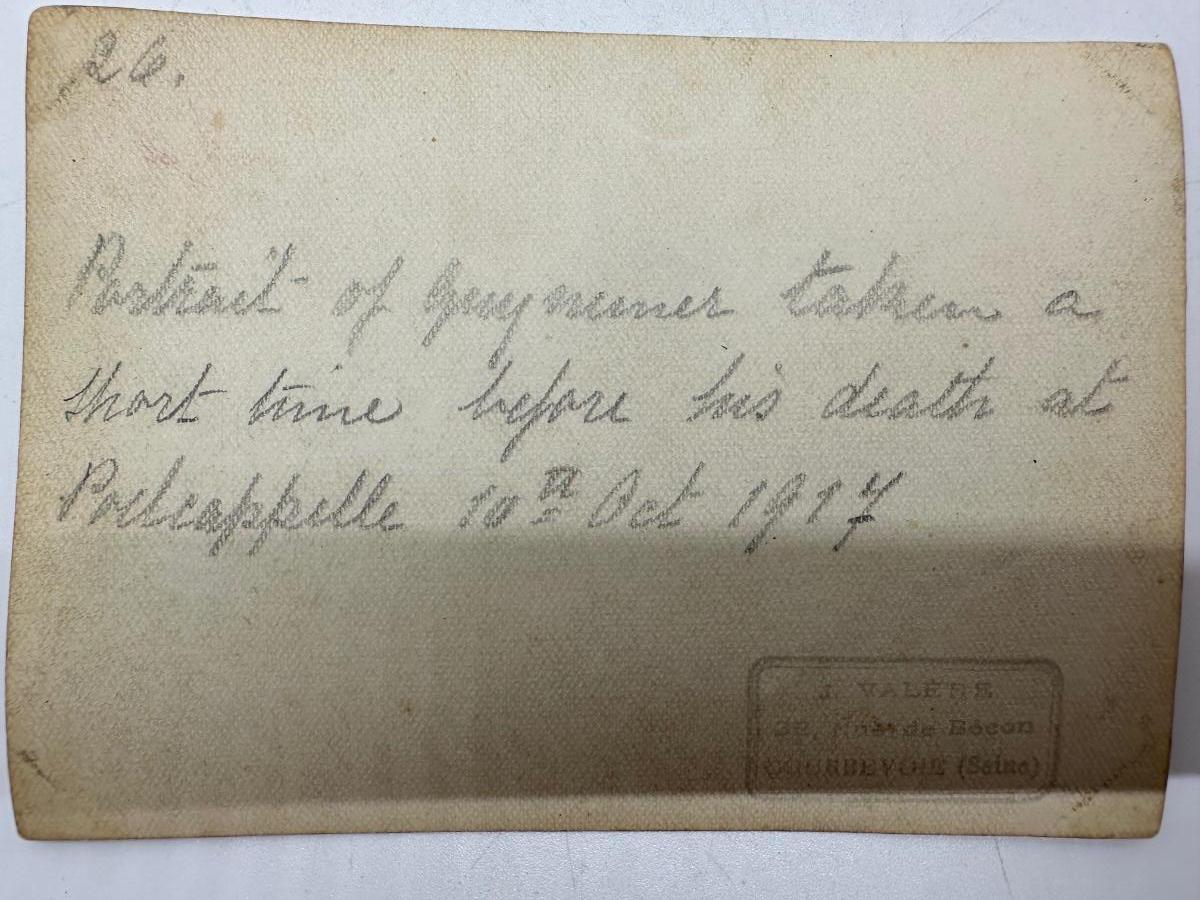 26.
Portrait of Guynemer taken a
short time before his death at
Poelcappelle 10th Oct 1917
J. VALÈRE
32, Rue de Bécon
COURBEVOIE (Seine)